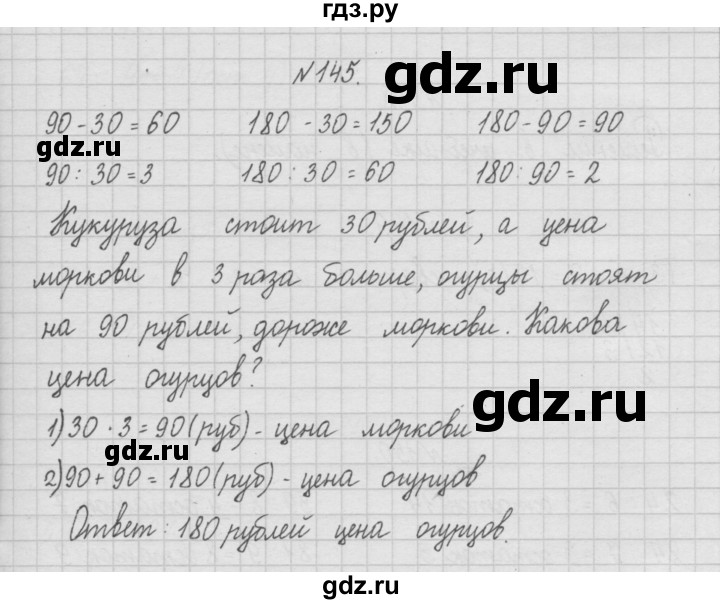 гдз.ру
№145.
gdz.ru
90-30=60 180-30=150 180-90=90
gdz.ru
90:30=3 180:30=60 180:90=2
Кукуруза стоит 30 рублей, а цена
моркови в 3 раза больше, огурцы стоят
на 90 рублей, дороже моркови. Какова
цена огурцов?
gdz.ru
1) 30·3=90(руб)-цена моркови
gdz.ru
2) 90+90=180(руб)-цена огурцов
Ответ: 180 рублей цена огурцов.
gdz.ru